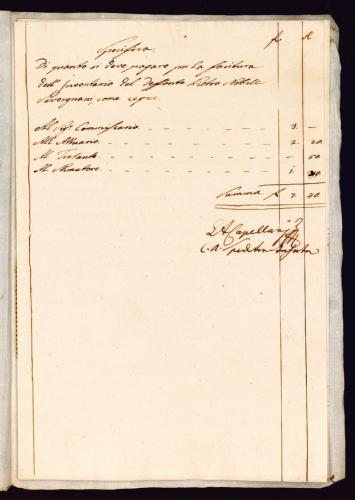 Specifica. f. k
Di quanto si deve pagare per la facitura
dell' inventario del defonto Pietro Nobile
Savorgnani come segue
Al Sigr Commissario 3. —
All' Attuario 2. 20.
Al 50.
Al 1
Summa f. 7. 40.
Capellaris